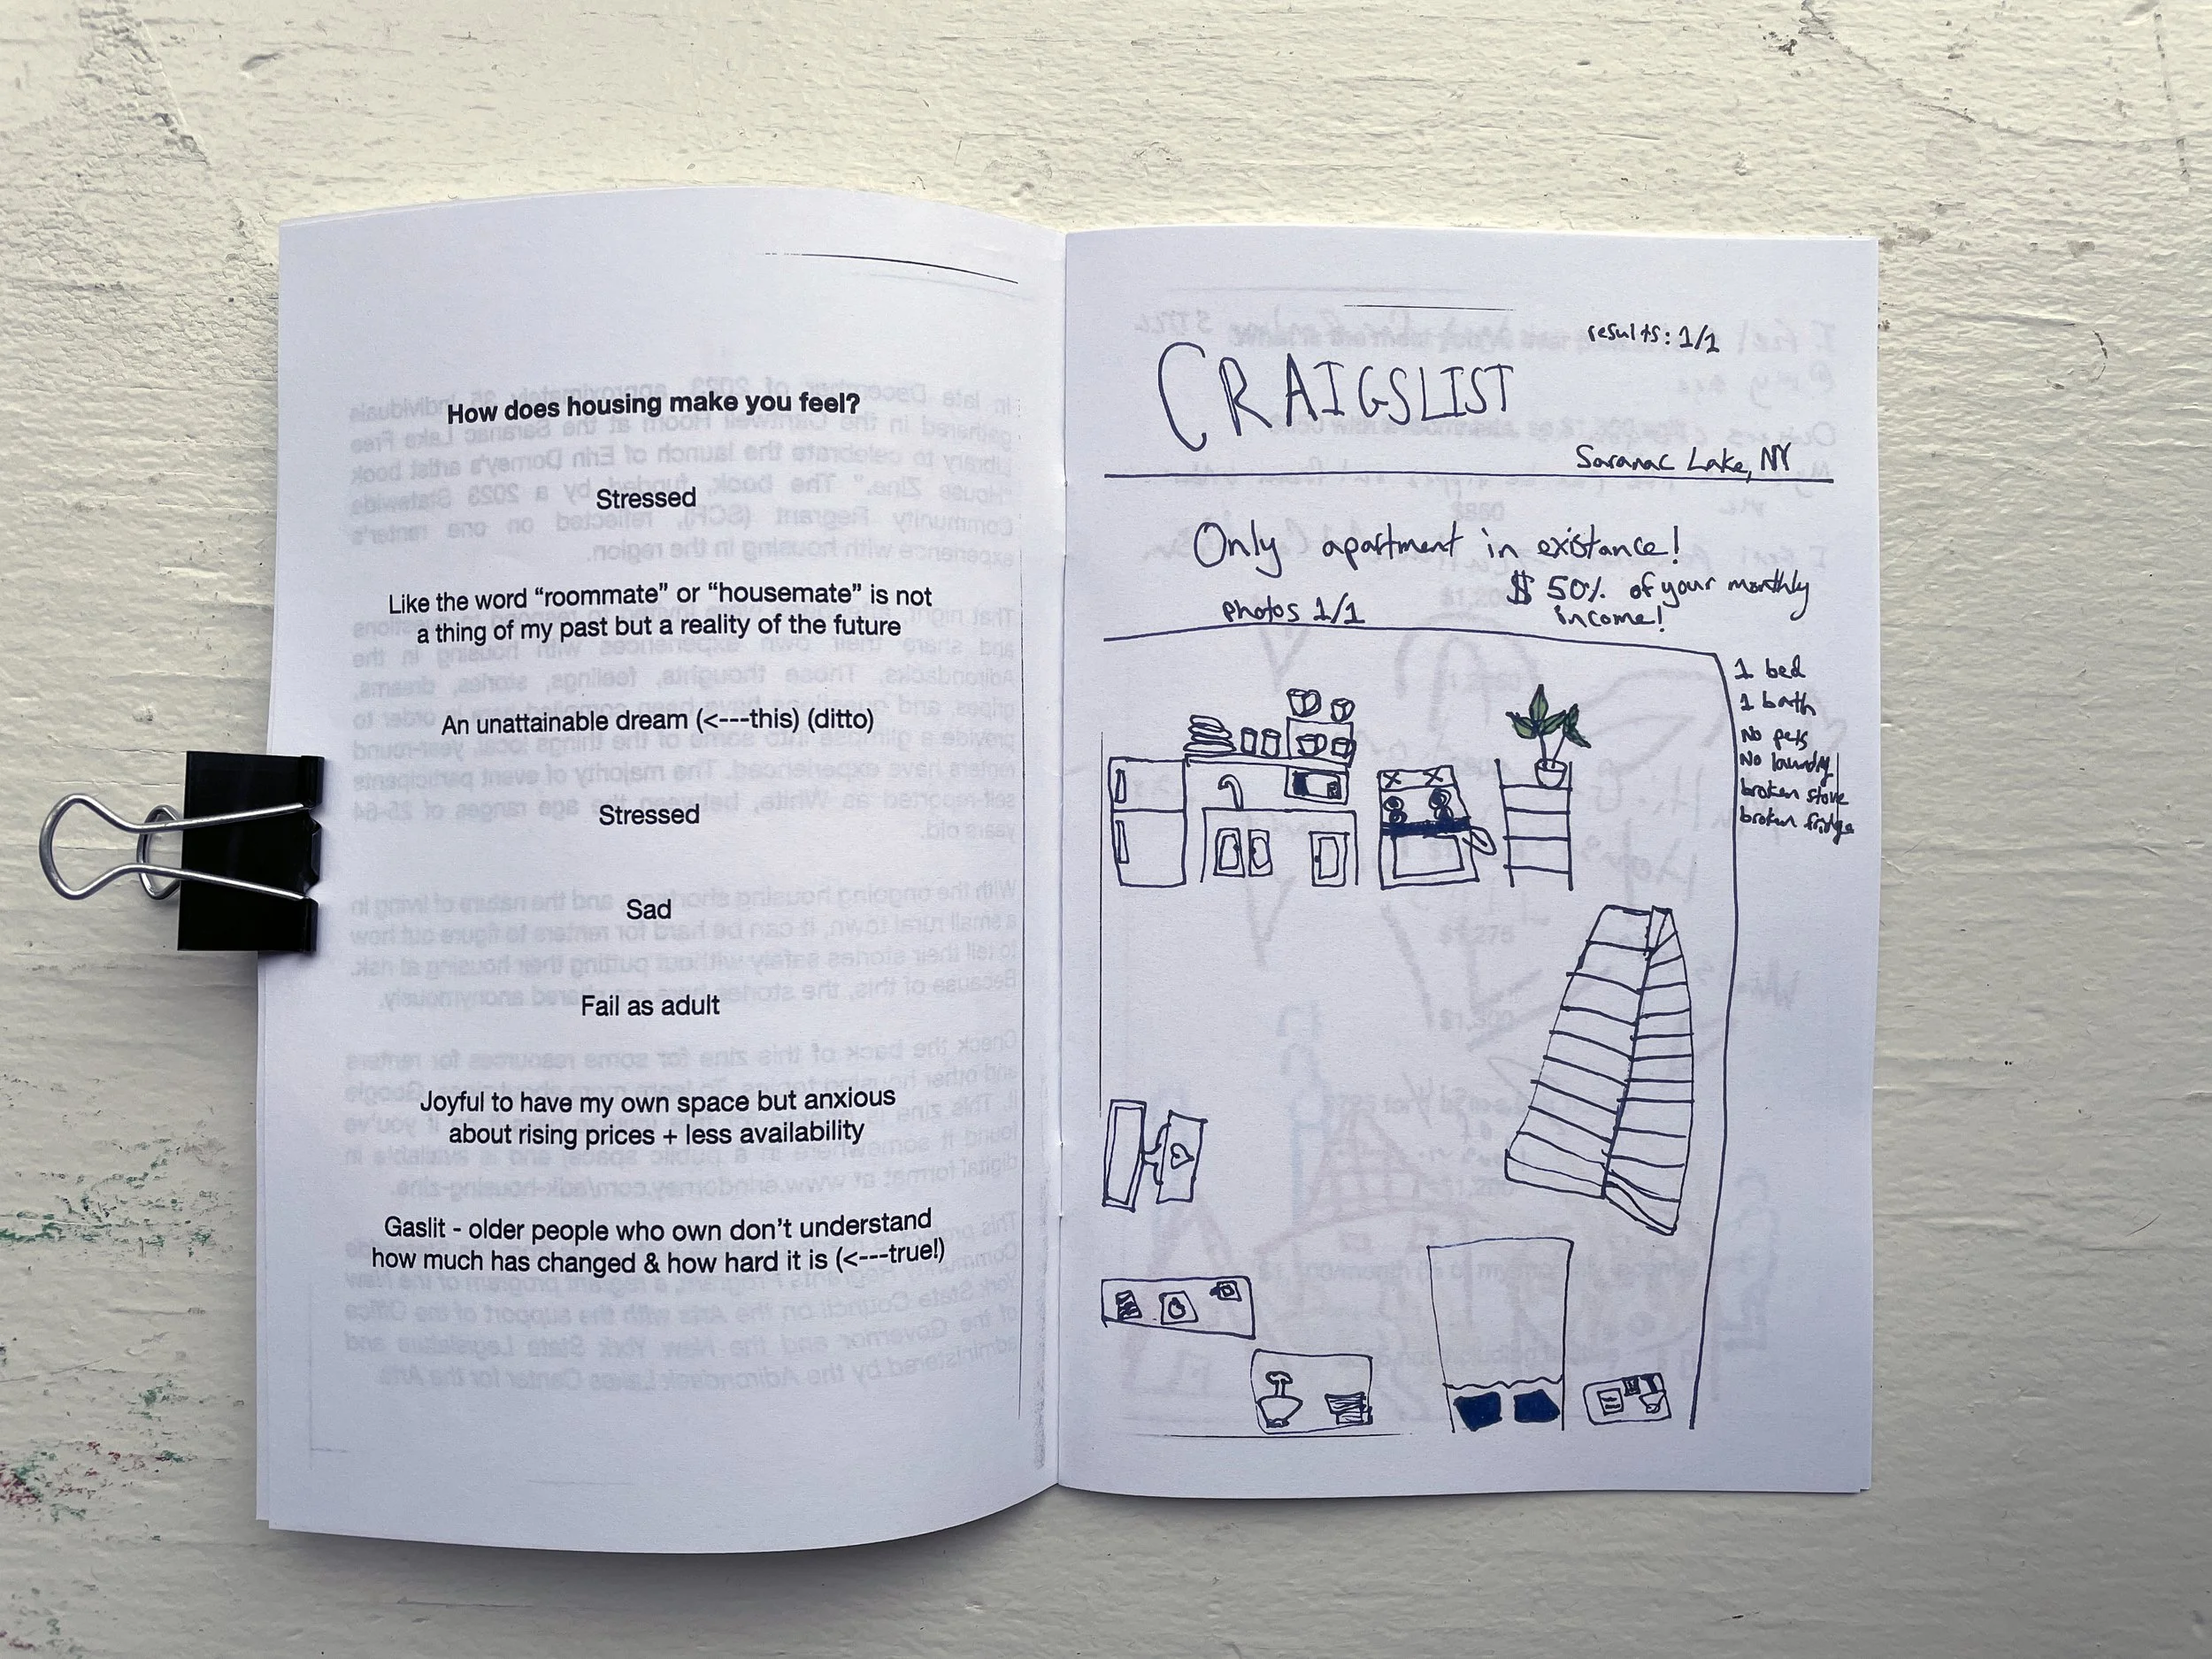 How does housing make you feel?
Stressed
Like the word “roommate” or “housemate” is not
a thing of my past but a reality of the future
An unattainable dream (<---this) (ditto)
Stressed
Sad
Fail as adult
Joyful to have my own space but anxious
about rising prices + less availability
Gaslit - older people who own don’t understand
how much has changed & how hard it is (<---true!)
results: 1/1
CRAIGSLIST
Saranac Lake, NY
Only apartment in existance!
$ 50% of your monthly
income!
photos 1/1
1 bed
1 bath
No pets
No laundry
broken stove
broken fridge